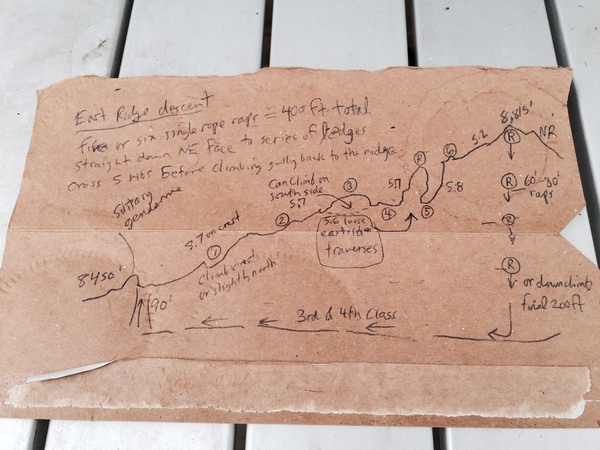 East Ridge descent
Five or six single rope raps = 400 ft total
straight down NE face to series of ledges
Cross 5 ribs before climbing gully back to the ridge
Solitary
gendarme
8450'
90'
5.7 on crest
1
Climb crest
or slightly north
2
Can Climb on
south side
5.7
3
5.6 loose
east side
traverses
4
5.7
R
5
6
5.8
5.2
8,815'
R
NR
R
60-80'
raps
R
R
or downclimb
final 200ft
3rd & 4th Class